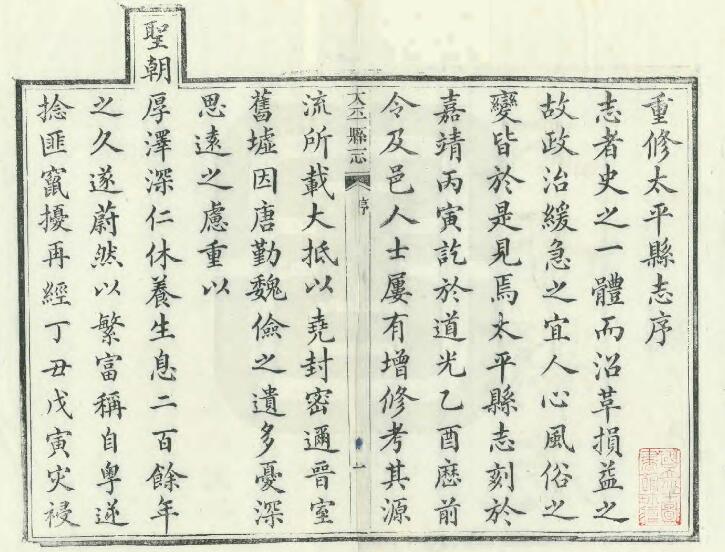 重修太平縣志序
志者史之一體而沿革損益之
故政治緩急之宜人心風俗之
變皆於是見焉太平縣志刻於
嘉靖丙寅訖於道光乙酉歴前
令及邑人士屢有增修考其源
太平縣志 序 一
流所載大抵以堯封密邇晉室
舊墟因唐勤魏儉之遺多憂深
思遠之慮重以
聖朝厚澤深仁休養生息二百餘年
之久遂蔚然以繁富稱自粵逆
捻匪竄擾再經丁丑戊寅灾祲